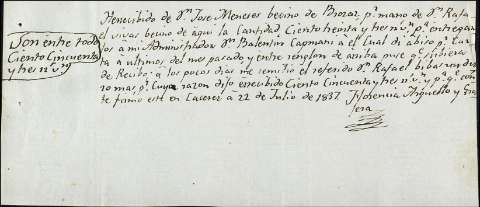 Son entre todo
Ciento Cincuenta
y tres r.s v.n
He recibido de D.n Jose Meneses becino de Brozas, p.r mano de D.n Rafa
el vivas becino de aqui la Cantidad Ciento treinta y tres r.s v.n p.a entregar
los a mi Administrador D.n Balentin Capmani a el Cual di abiso p.r Car
ta a ultimos del mes pasado y entre renglon de arriba puse p.a q.e sirbiera
de Recibo: a los pocos dias me remitio el referido D.n Rafael bibas
10 mas p.r Cuya razon digo he recibido Ciento Cincuenta y tres r.s v.n y p.a q.e cons
te firmo este en Caceres a 22 de Julio de 1837. Florencia Arguello y Gra
jera